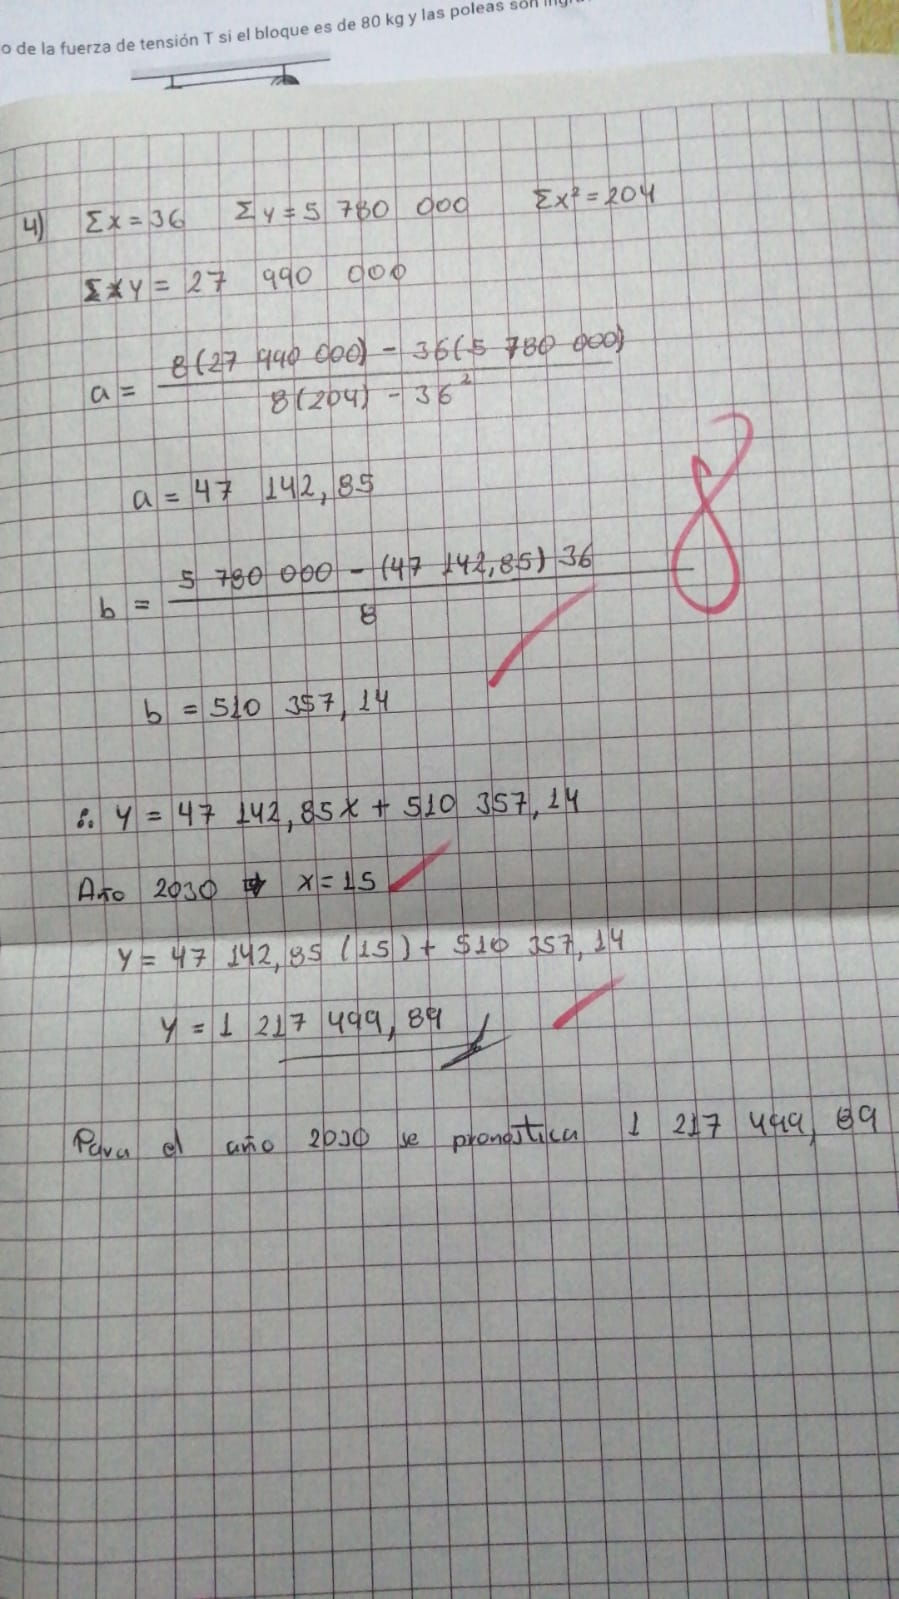 o de la fuerza de tensión T si el bloque es de 80 kg y las poleas son
4) Σx = 36 Σy = 5 780 000 Σx² = 204
Σxy = 27 990 000
a = 8(27 990 000) - 36(5 780 000) / 8(204) - 36²
a = 47 142,85
b = 5 780 000 - (47 142,85) 36 / 8
8
b = 510 357,14
∴ y = 47 142,85x + 510 357,14
Año 2030 ⇒ x = 15
y = 47 142,85 (15) + 510 357,14
y = 1 217 499,89
Para el año 2030 se pronostica 1 217 499,89